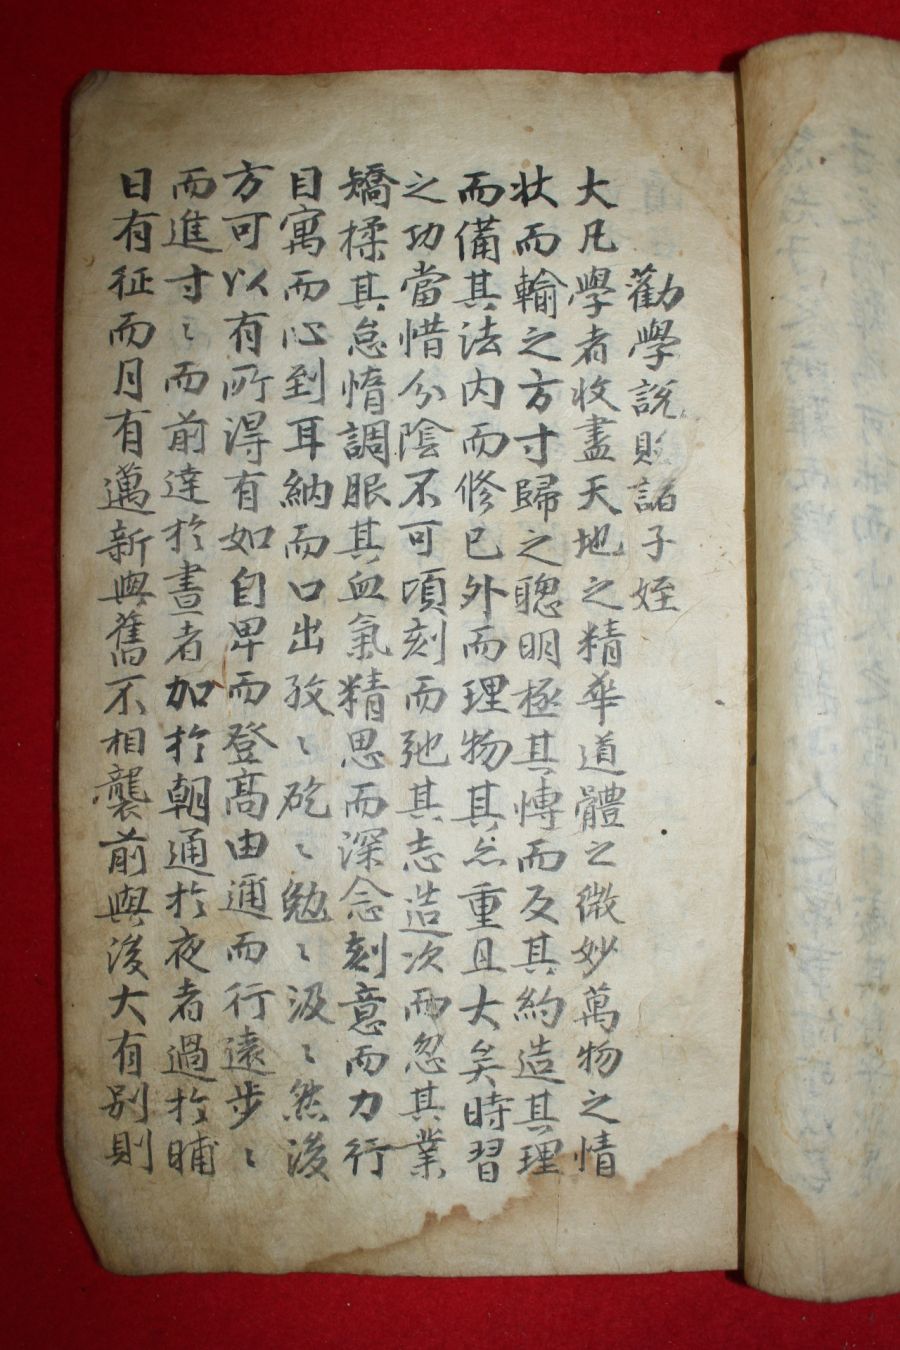 勸學說貽諸子姪
大凡學者收盡天地之精華道體之微妙萬物之情
狀而輸之方寸歸之聰明極其博而反其約造其理
而備其法內而修己外而理物其思重且大矣時習
之功當惜分陰不可頃刻而弛其志造次而忽其業
矯揉其怠惰調眠其血氣精思而深念刻意而力行
目寓而心到耳納而口出孜〻矻〻勉〻汲〻然後
方可以有所得有如自卑而登高由邇而行遠步〻
而進寸〻而前達於晝者加於朝通於夜者過於晡
日有征而月有邁新與舊不相襲前與後大有別則